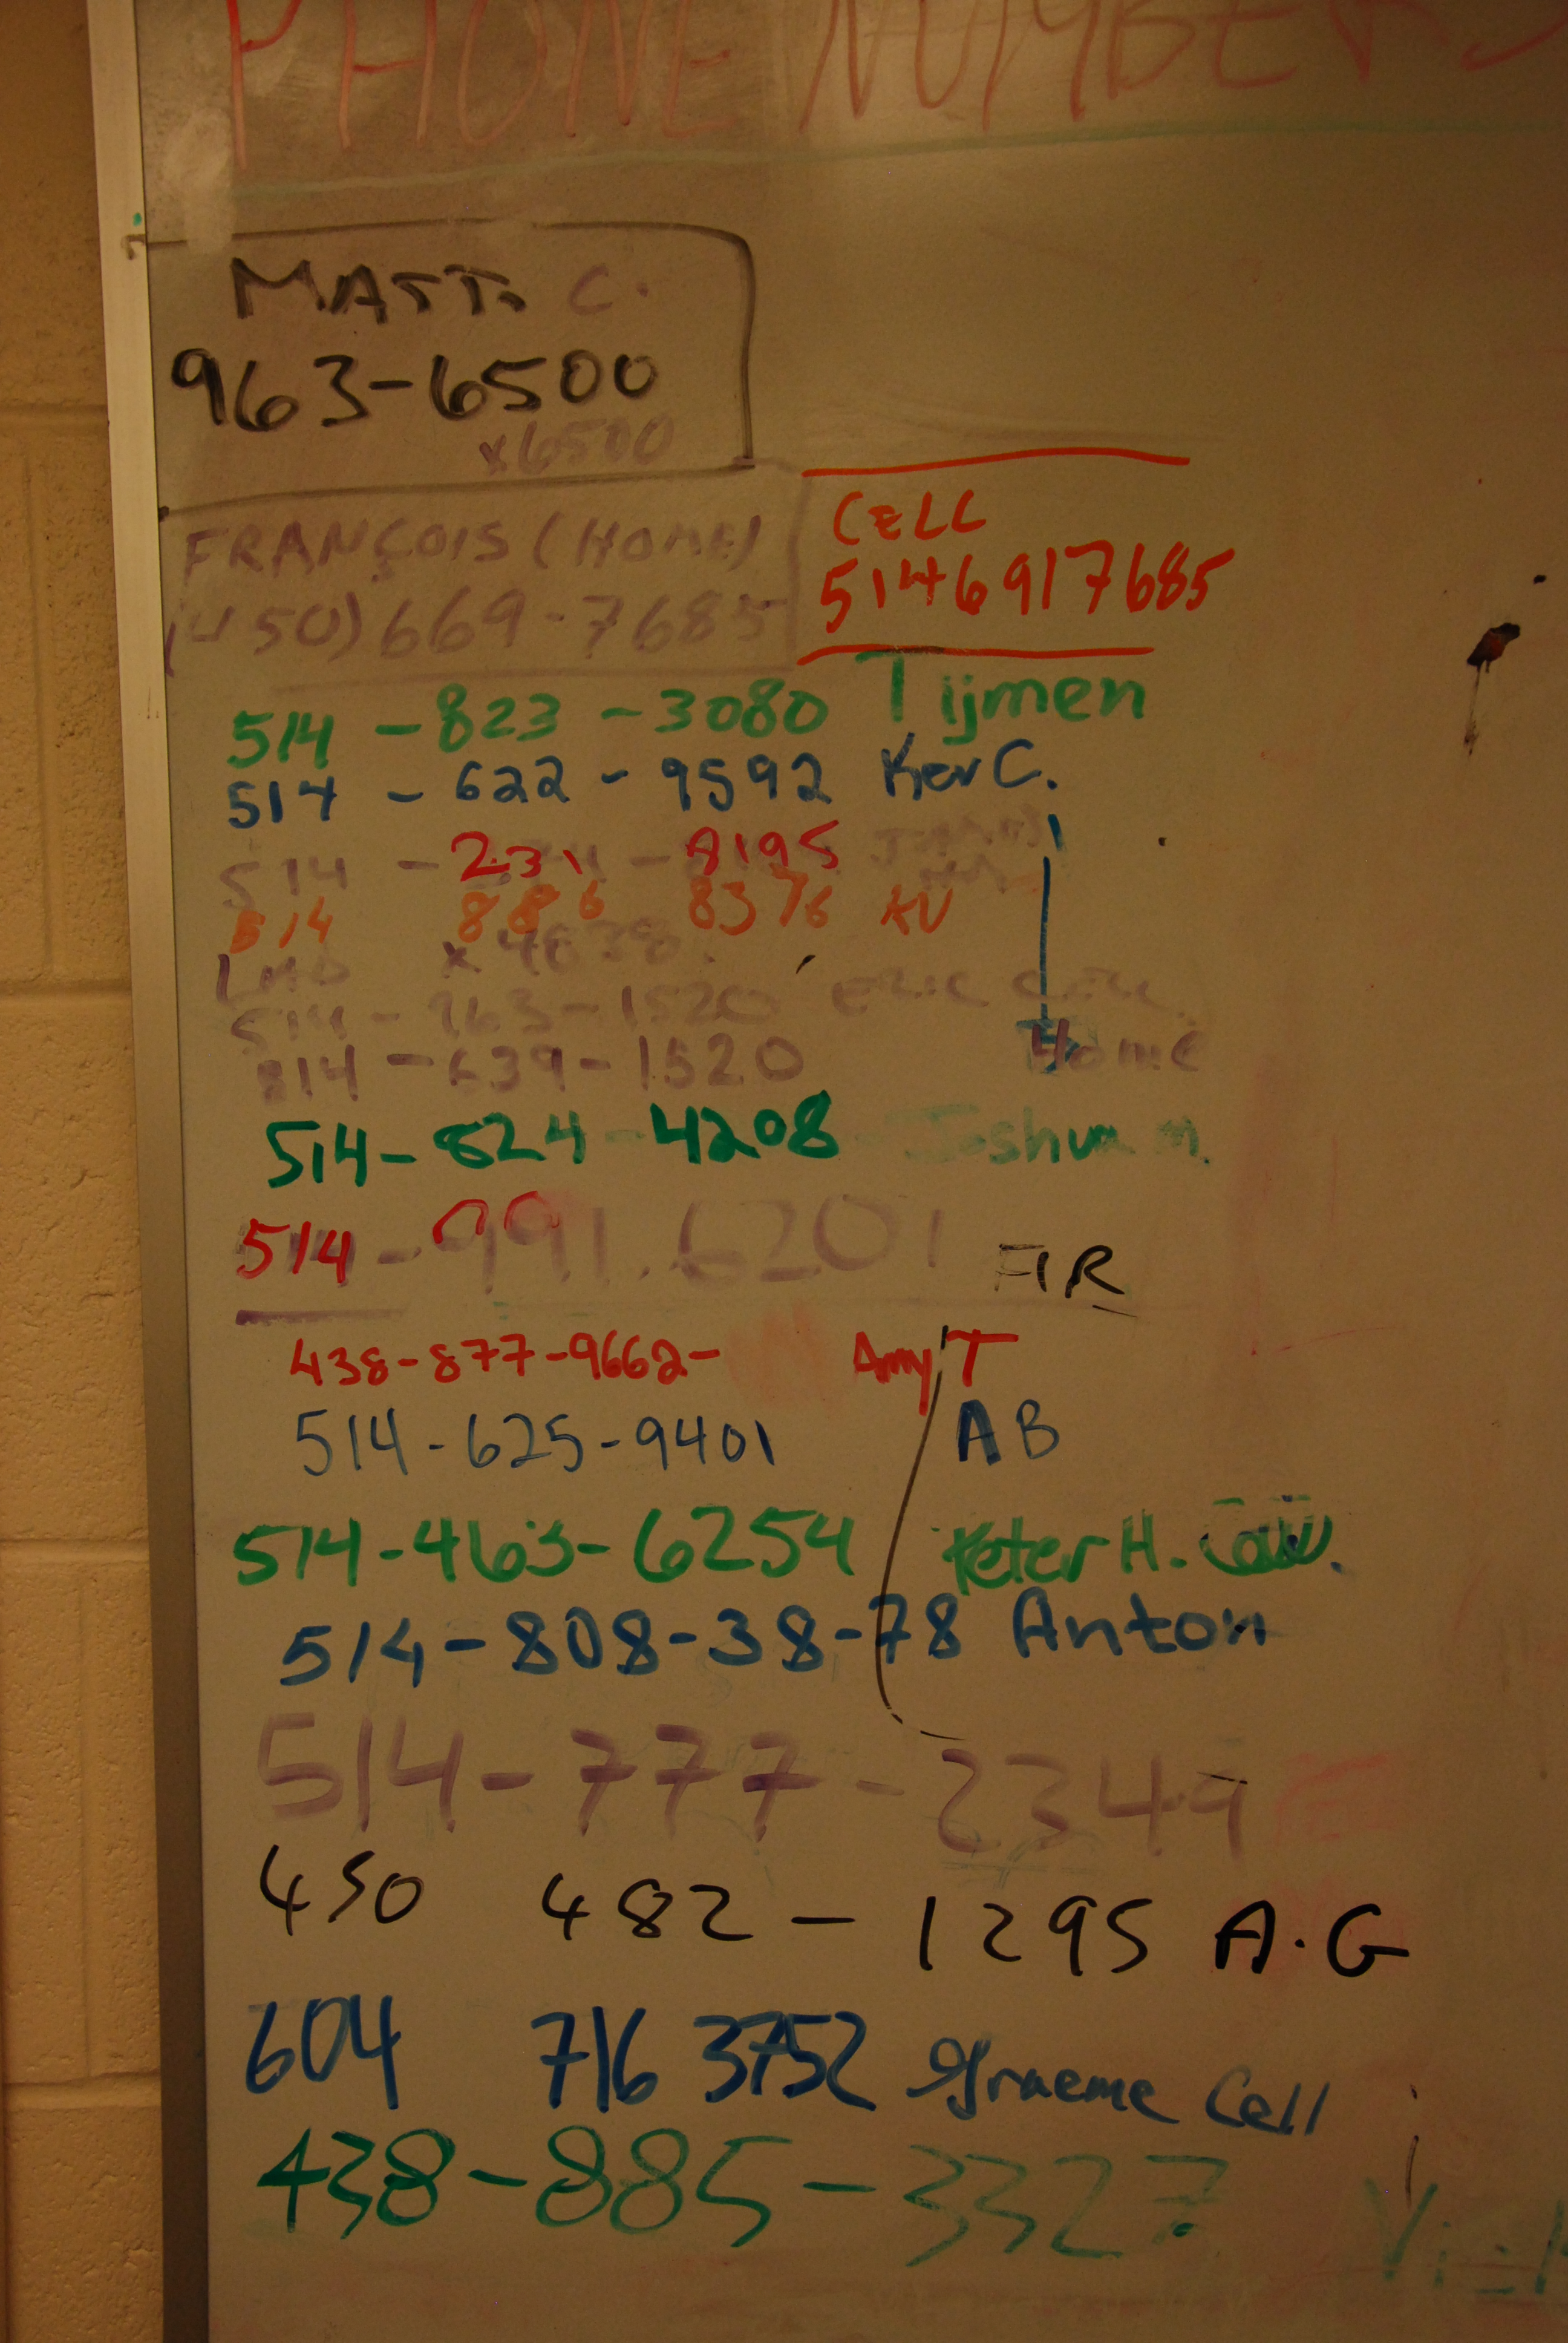 PHONE NUMBERS
MATT. C.
963-6500
x6500
FRANÇOIS (HOME)
(450) 669-7685
CELL
5146917685
514 - 823 - 3080 Tijmen
514 - 622 - 9592 Kev C.
514 - 231 - 8195
514 886 8376 AV
x 4838
514 - 963 - 1520 ERIC CELL
514 - 639 - 1520 Home
514 - 824 - 4208 Joshua M.
514 - 991.6201 FIR
438-877-9662- Amy T
514-625-9401 AB
514-463-6254 Peter H.
514-808-38-78 Anton
514-777-2349
450 482 - 1295 A.G
604 716 3752 Graeme Cell
438-885-3327